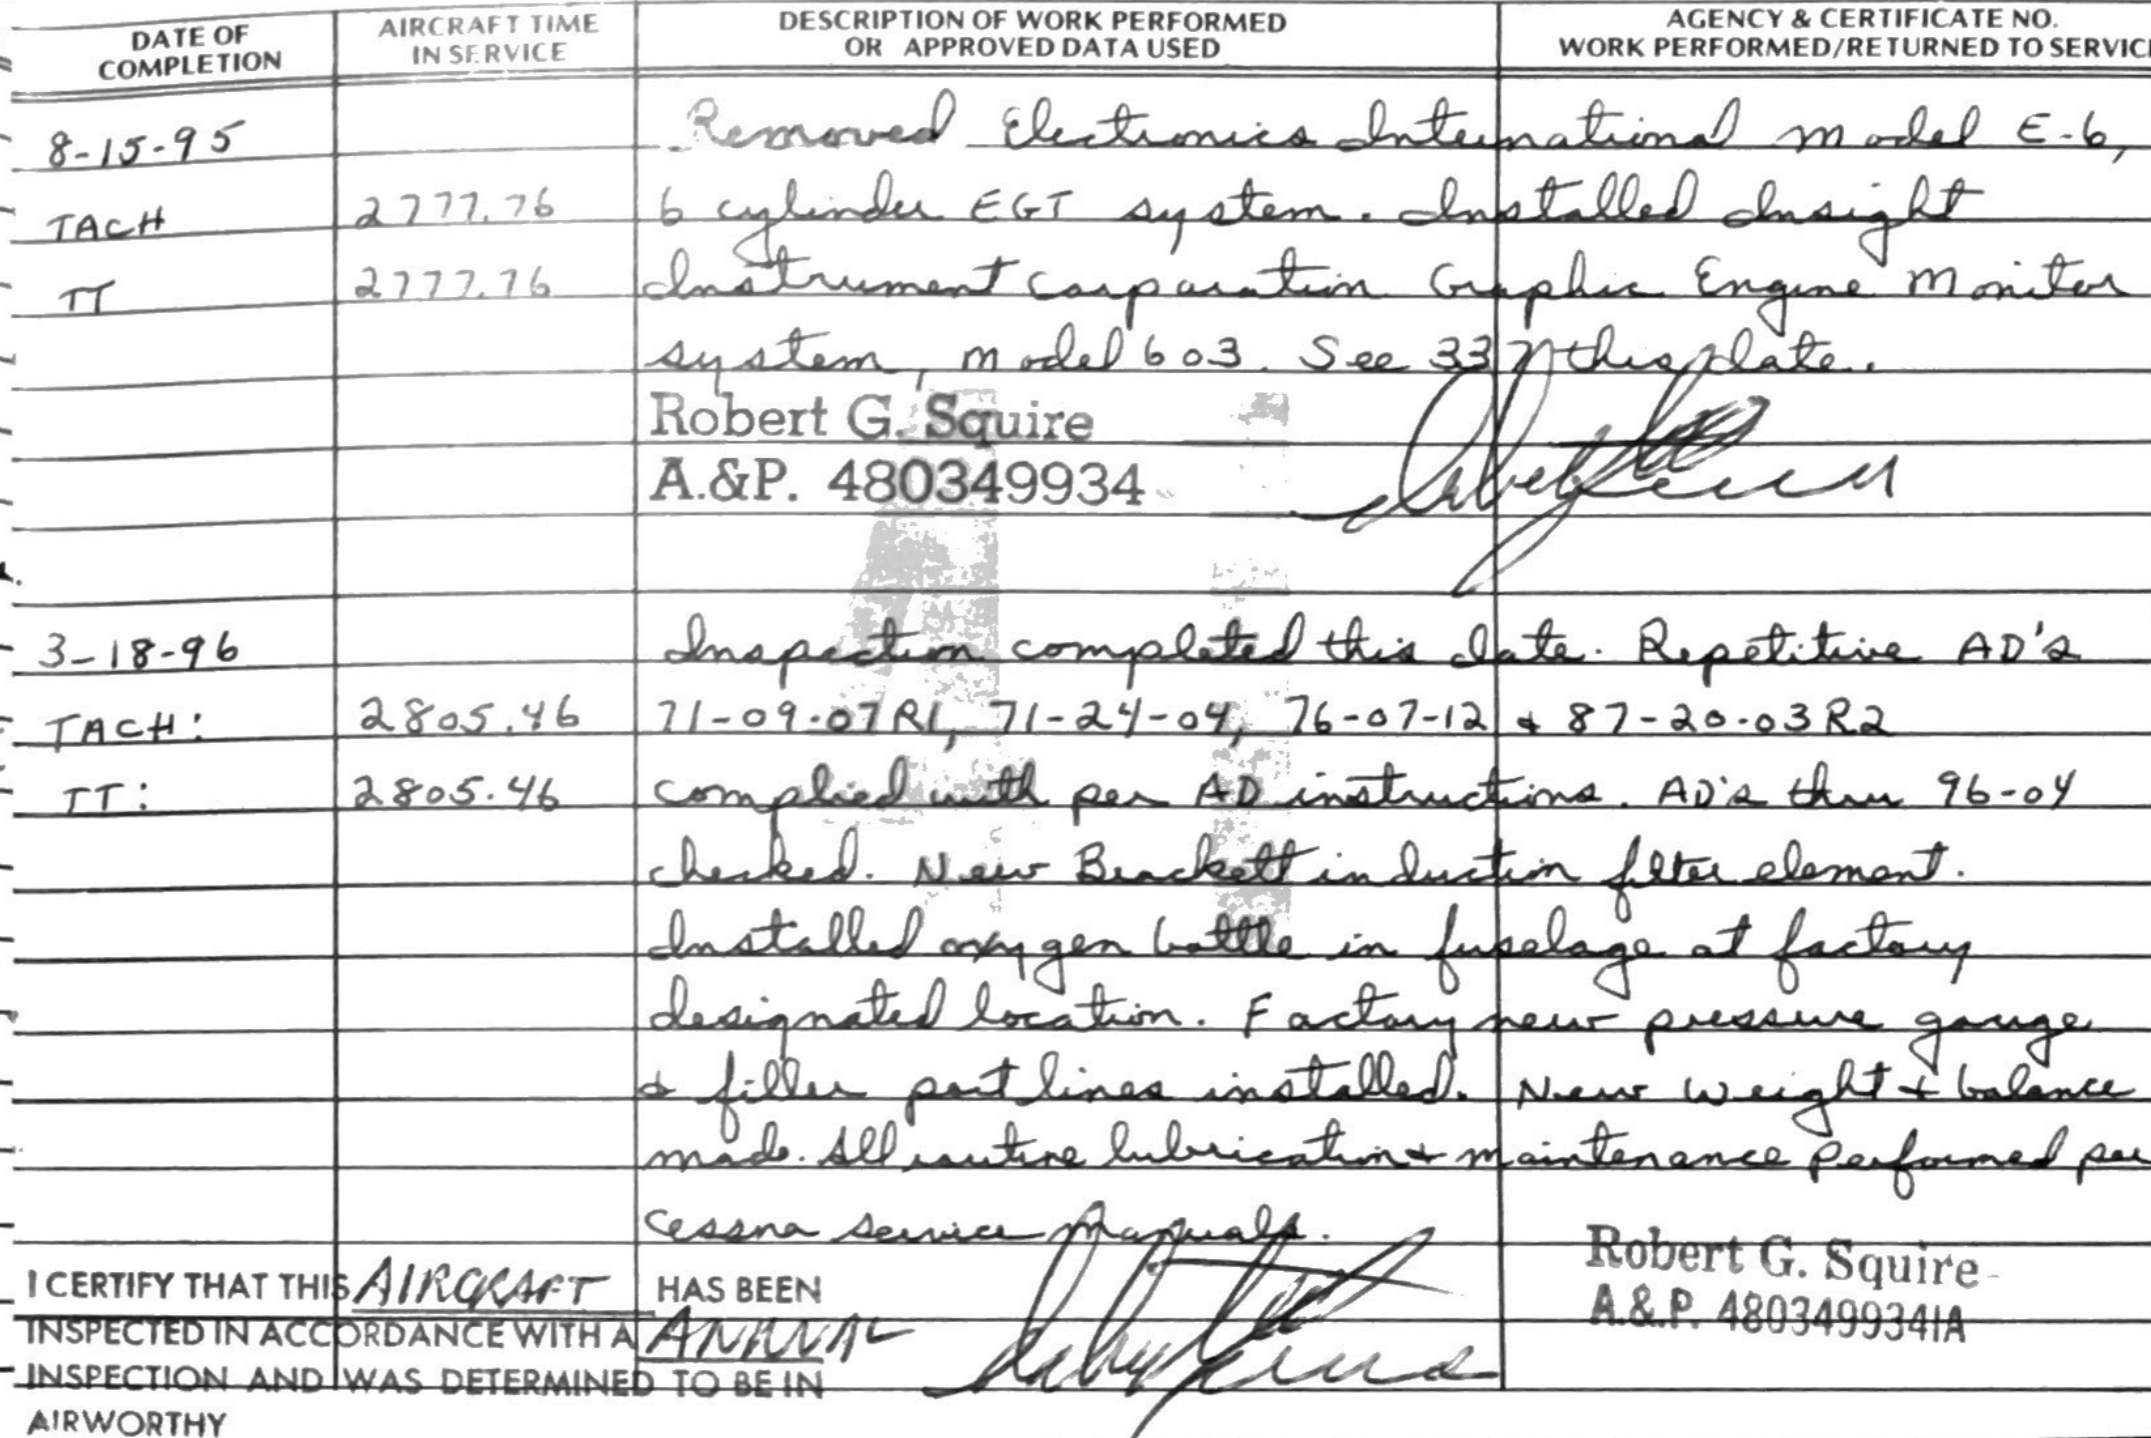 DATE OF COMPLETION
AIRCRAFT TIME IN SERVICE
DESCRIPTION OF WORK PERFORMED OR APPROVED DATA USED
AGENCY & CERTIFICATE NO. WORK PERFORMED/RETURNED TO SERVIC
8-15-95 Removed Electronics International Model E-6,
TACH 2777.76 6 cylinder EGT system. Installed Insight
TT 2777.76 Instrument Corporation Graphic Engine Monitor
system, model 603. See 337 this date.
Robert G. Squire
A.&P. 480349934
3-18-96 Inspection completed this date. Repetitive AD's
TACH: 2805.46 71-09-07R1, 71-24-04, 76-07-12 & 87-20-03R2
TT: 2805.46 complied with per AD instructions. AD's thru 96-04
checked. New Brackett induction filter element.
Installed oxygen bottle in fuselage at factory
designated location. Factory new pressure gauge
& filler port lines installed. New weight & balance
made. All routine lubrication & maintenance performed per
Cessna service manuals.
Robert G. Squire
A.&P. 480349934IA
I CERTIFY THAT THIS AIRCRAFT HAS BEEN
INSPECTED IN ACCORDANCE WITH A ANNUAL
INSPECTION AND WAS DETERMINED TO BE IN
AIRWORTHY